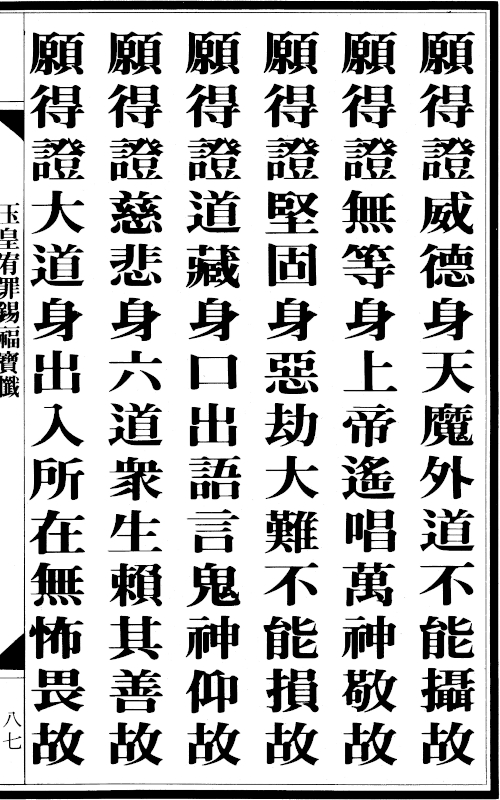 願得證威德身天魔外道不能攝故
願得證無等身上帝遙唱萬神敬故
願得證堅固身惡劫大難不能損故
願得證道藏身口出語言鬼神仰故
願得證慈悲身六道衆生賴其善故
願得證大道身出入所在無怖畏故
玉皇宥罪錫福寶懺
八七